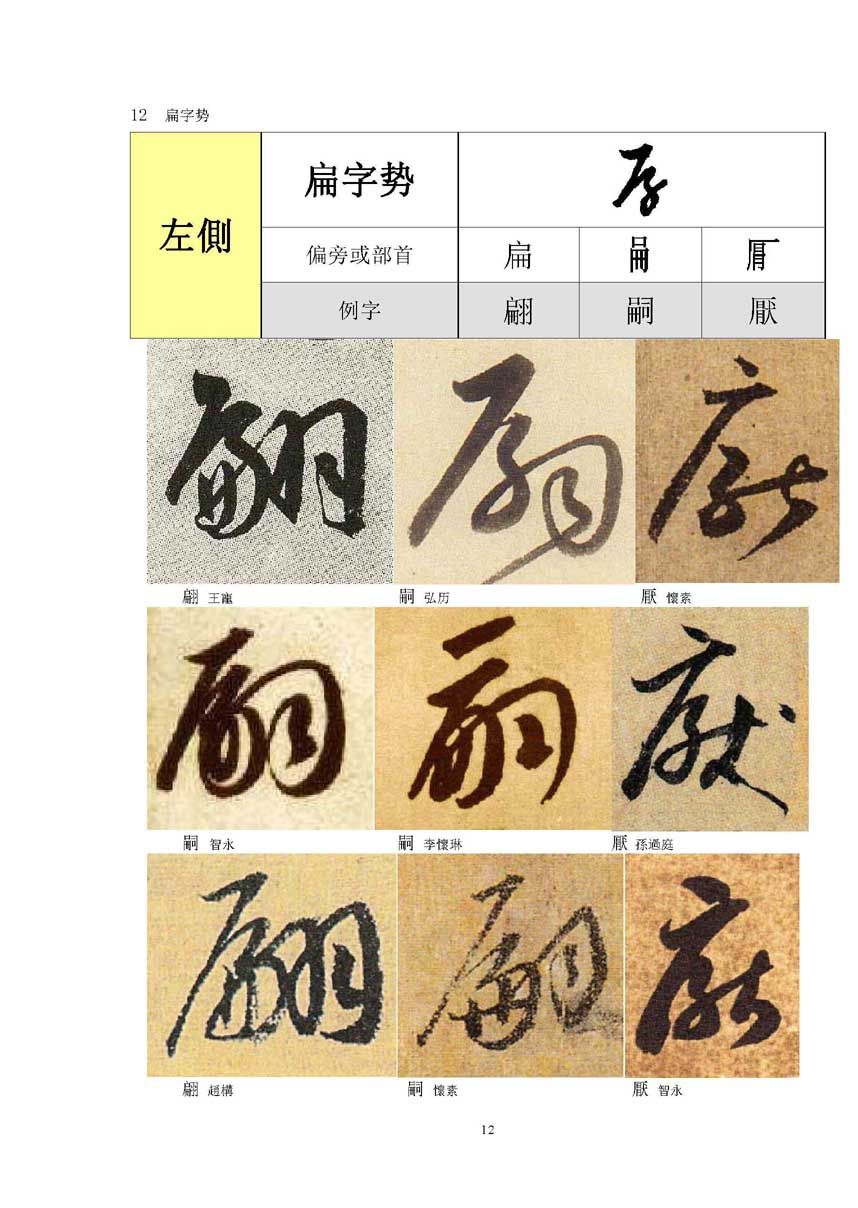 12 扁字势
左側
扁字势
偏旁或部首 扁
例字 翩 嗣 厭
翩 王寵
嗣 弘历
厭 懷素
嗣 智永
嗣 李懷琳
厭 孫過庭
翩 趙構
嗣 懷素
厭 智永
12